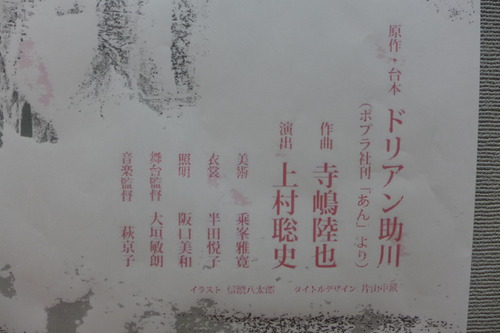 原作・台本 ドリアン助川
（ポプラ社刊「あん」より）
作曲 寺嶋陸也
演出 上村聡史
美術 乗峯雅寛
衣裳 半田悦子
照明 阪口美和
舞台監督 大垣敏朗
音楽監督 萩京子
イラスト 信濃八太郎 タイトルデザイン 片山中藏